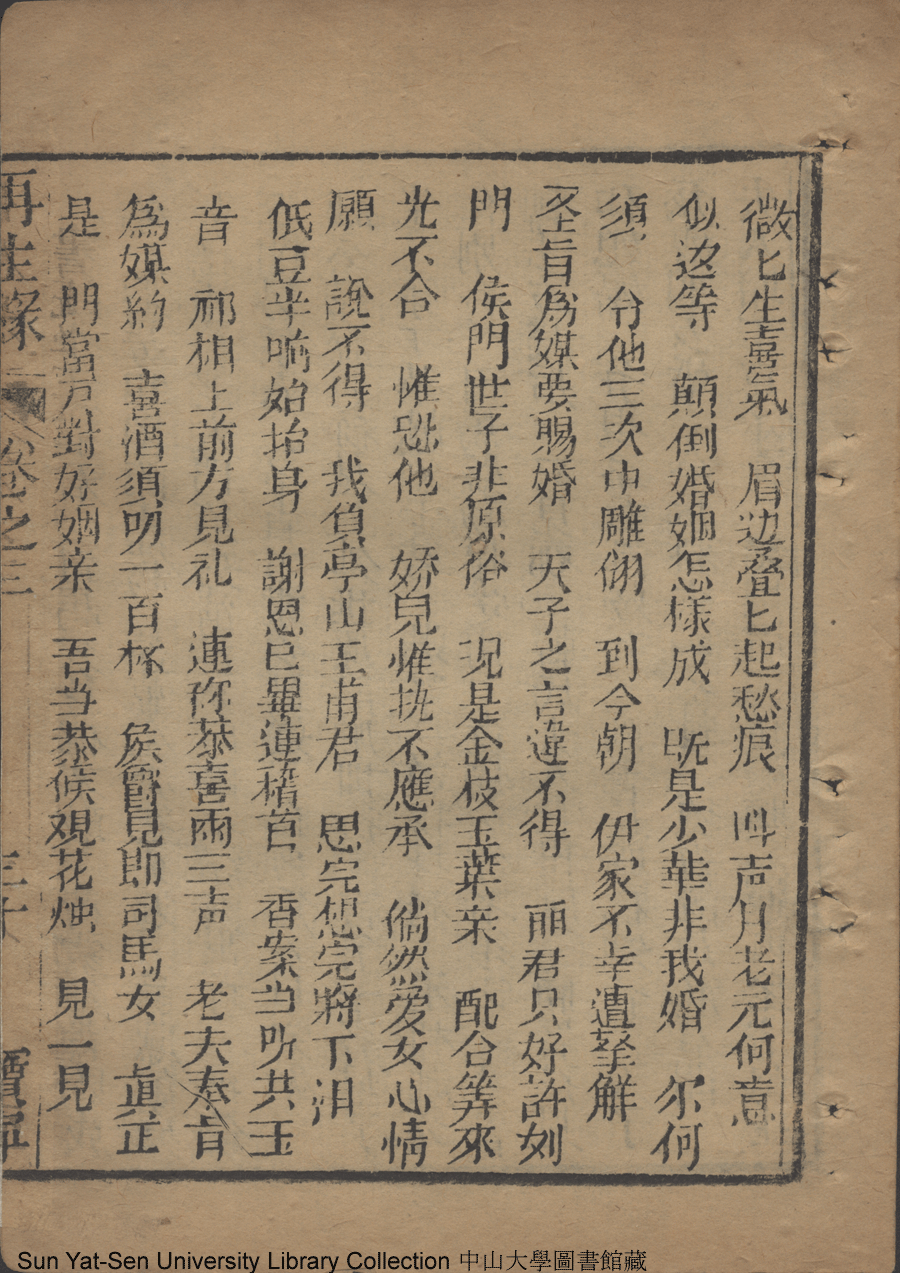 微匕生喜氣　眉边叠匕起愁痕　叫声月老元何意
似这等　顛倒婚姻怎樣成　既是少華非我婚　尔何
須　令他三次中雕翎　到今朝　伊家不幸遭拏解
圣旨為媒要賜婚　天子之言違不得　丽君只好許刘
門　侯門世子非原俗　况是金枝玉葉亲　配合筭來
尤不合　惟恐他　娇兒惟执不應承　倘然愛女心情
願　說不得　我負亭山王甫君　思完想完將下泪
低豆半晌始抬身　謝恩已畢連稽首　香案当所共玉
音　祁相上前方見礼　連称恭喜兩三声　老夫奉旨
為媒約　喜酒須叨一百杯　侯爵見即司馬女　真正
是　門當戸對好姻亲　吾当恭候观花烛　見一見
再生緣　卷之三　三十　寶寧
Sun Yat-Sen University Library Collection 中山大學圖書館藏